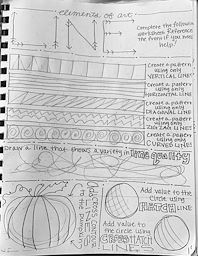 elements of art
Complete the following
worksheet. Reference
the front if you need
help!
Create a pattern
using only
VERTICAL LINES
Create a pattern
using only
HORIZONTAL LINES
Create a pattern
using only
DIAGONAL LINES
Create a pattern
using only
ZIGZAG LINES
Create a pattern
using only
CURVED LINES
Draw a line that shows a variety in line quality
Add cross contour
lines
to the pumpkin
Add value to the
Circle using
HATCH
LINES
Add value to
the circle using
CROSSHATCH
LINES